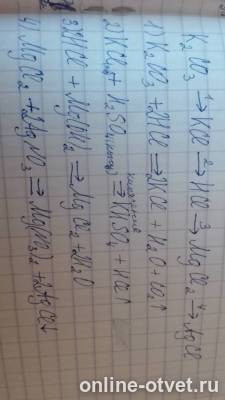 K₂CO₃ ¹→ KCl ²→ HCl ³→ MgCl₂ ⁴→ AgCl
1) K₂CO₃ + 2HCl ⇒ 2KCl + H₂O + CO₂↑
2) KCl + H₂SO₄ ⇒ KHSO₄ + HCl↑
3) 2HCl + Mg(OH)₂ ⇒ MgCl₂ + 2H₂O
4) MgCl₂ + 2AgNO₃ ⇒ Mg(NO₃)₂ + 2AgCl↓
online-otvet.ru